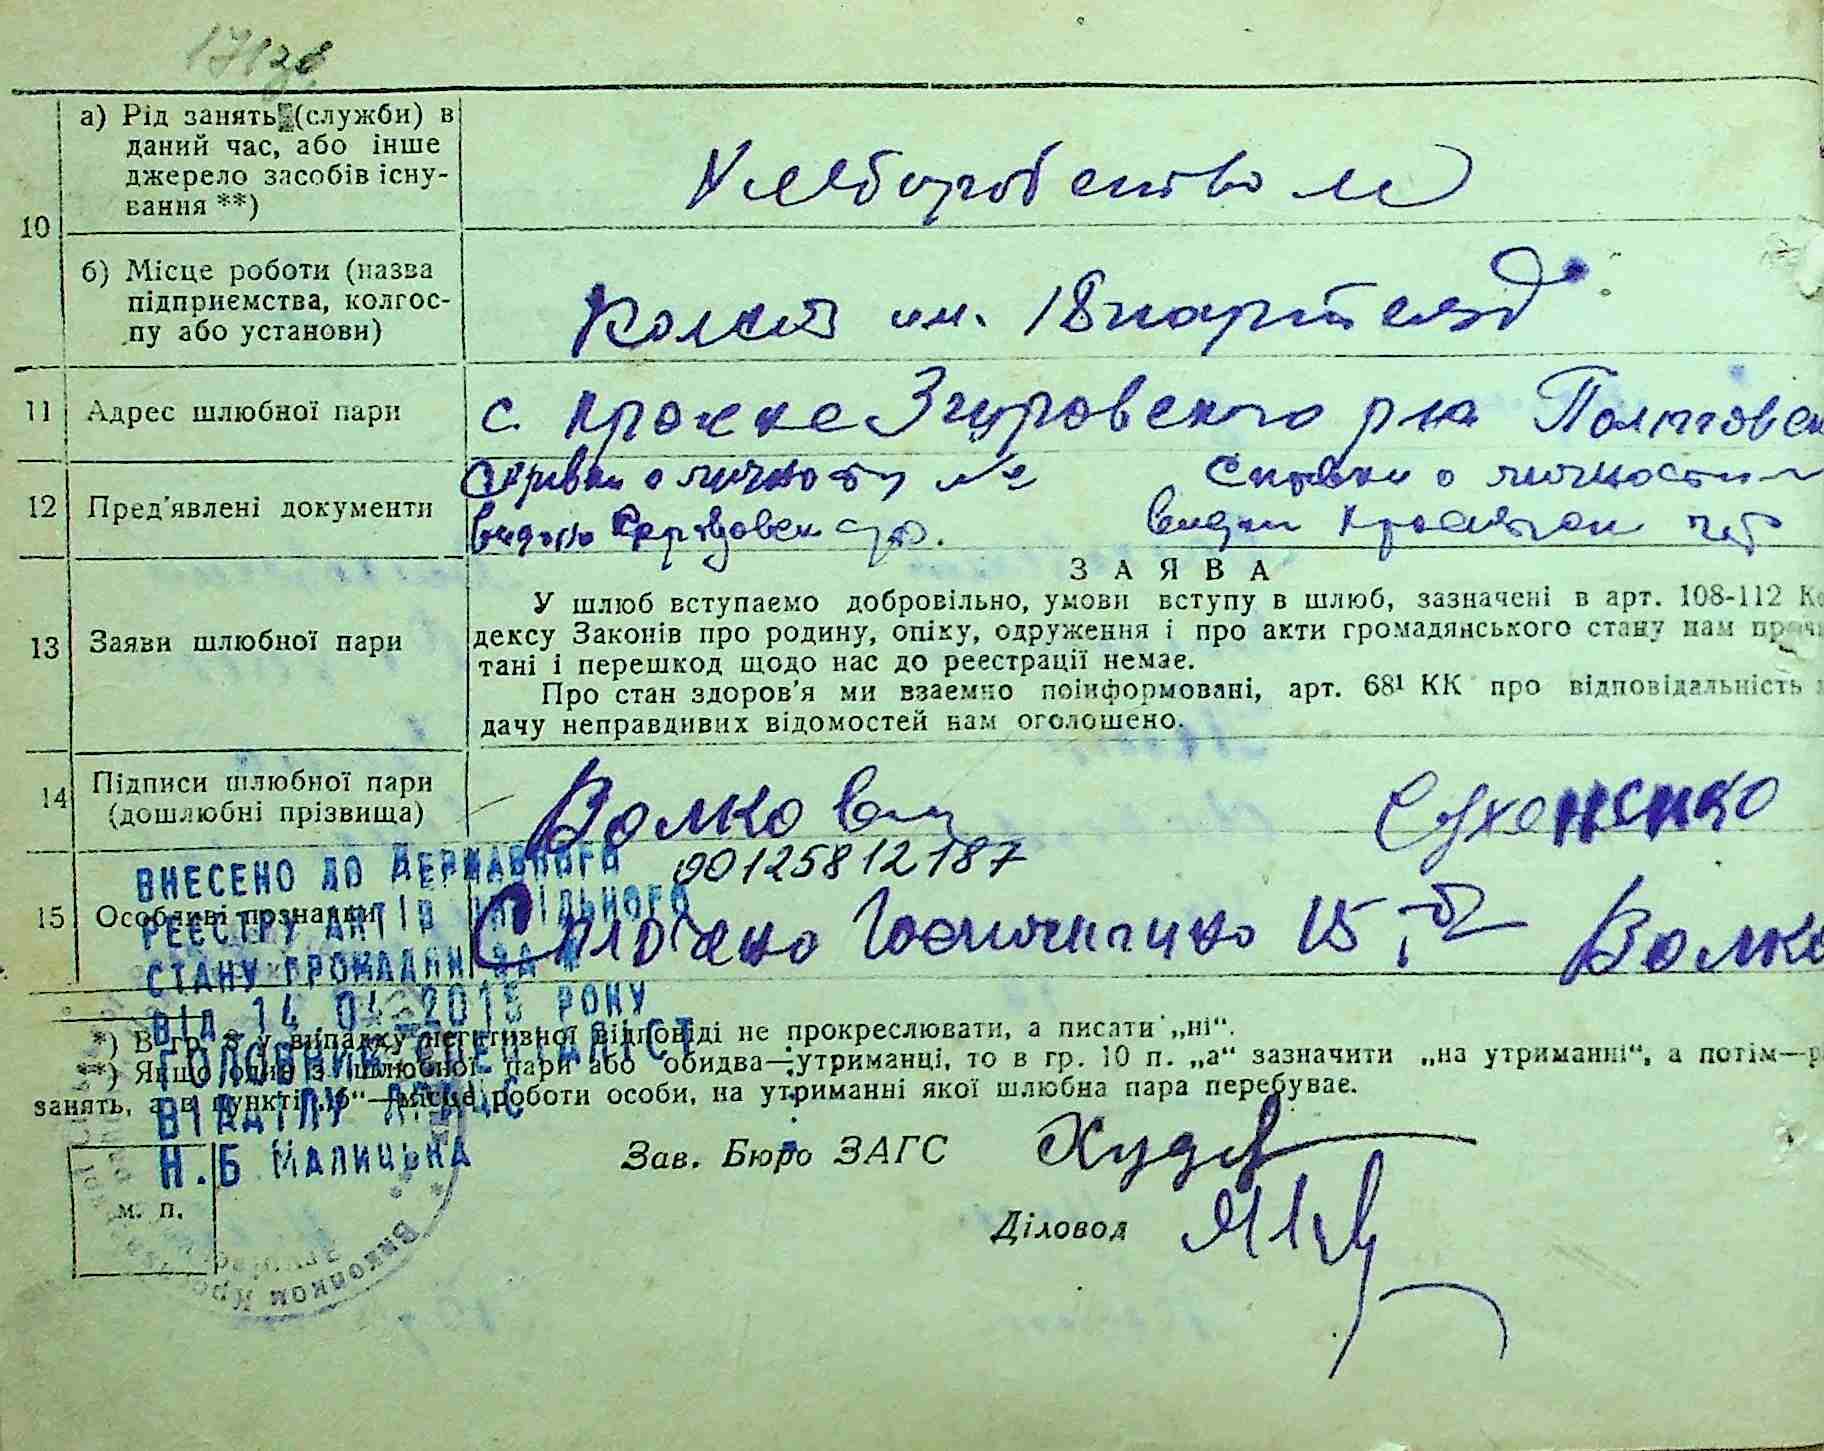 10
а) Рід занять (служби) в
даний час, або інше
джерело засобів існу-
вання **)
Хлеборобством
б) Місце роботи (назва
підприємства, колгос-
пу або установи)
Колхоз им. 18 партсъезд
11 Адрес шлюбної пари
с. Згуровского р-на Полтавск
12 Пред'явлені документи
Справки о личности № Справки о личности
видан
13 Заяви шлюбної пари
ЗАЯВА
У шлюб вступаємо добровільно, умови вступу в шлюб, зазначені в арт. 108-112 Ко
дексу Законів про родину, опіку, одруження і про акти громадянського стану нам прочи
тані і перешкод щодо нас до реєстрації немає.
Про стан здоров'я ми взаємно поінформовані, арт. 68¹ КК про відповідальність
дачу неправдивих відомостей нам оголошено.
14 Підписи шлюбної пари
(дошлюбні прізвища)
Волко Сухоненко
00125812187
15 Особливі познанки
15 Волко
ВНЕСЕНО ДО ДЕРЖАВНОГО
РЕЄСТРУ АКТІВ ЦИВІЛЬНОГО
СТАНУ ГРОМАДЯН ЗА №
ВІД 14 04 2015 РОКУ
ГОЛОВНИЙ СПЕЦІАЛІСТ
ВІДДІЛУ ДРАЦС
Н.Б МАЛИЦЬКА
*) В гр. 8 у випадку негативної відповіді не прокреслювати, а писати „ні“.
**) Якщо один з шлюбної пари або обидва—утриманці, то в гр. 10 п. „а“ зазначити „на утриманні“, а потім—р
занять, а в пункті „б“—місце роботи особи, на утриманні якої шлюбна пара перебуває.
Зав. Бюро ЗАГС
Діловод
м. п.